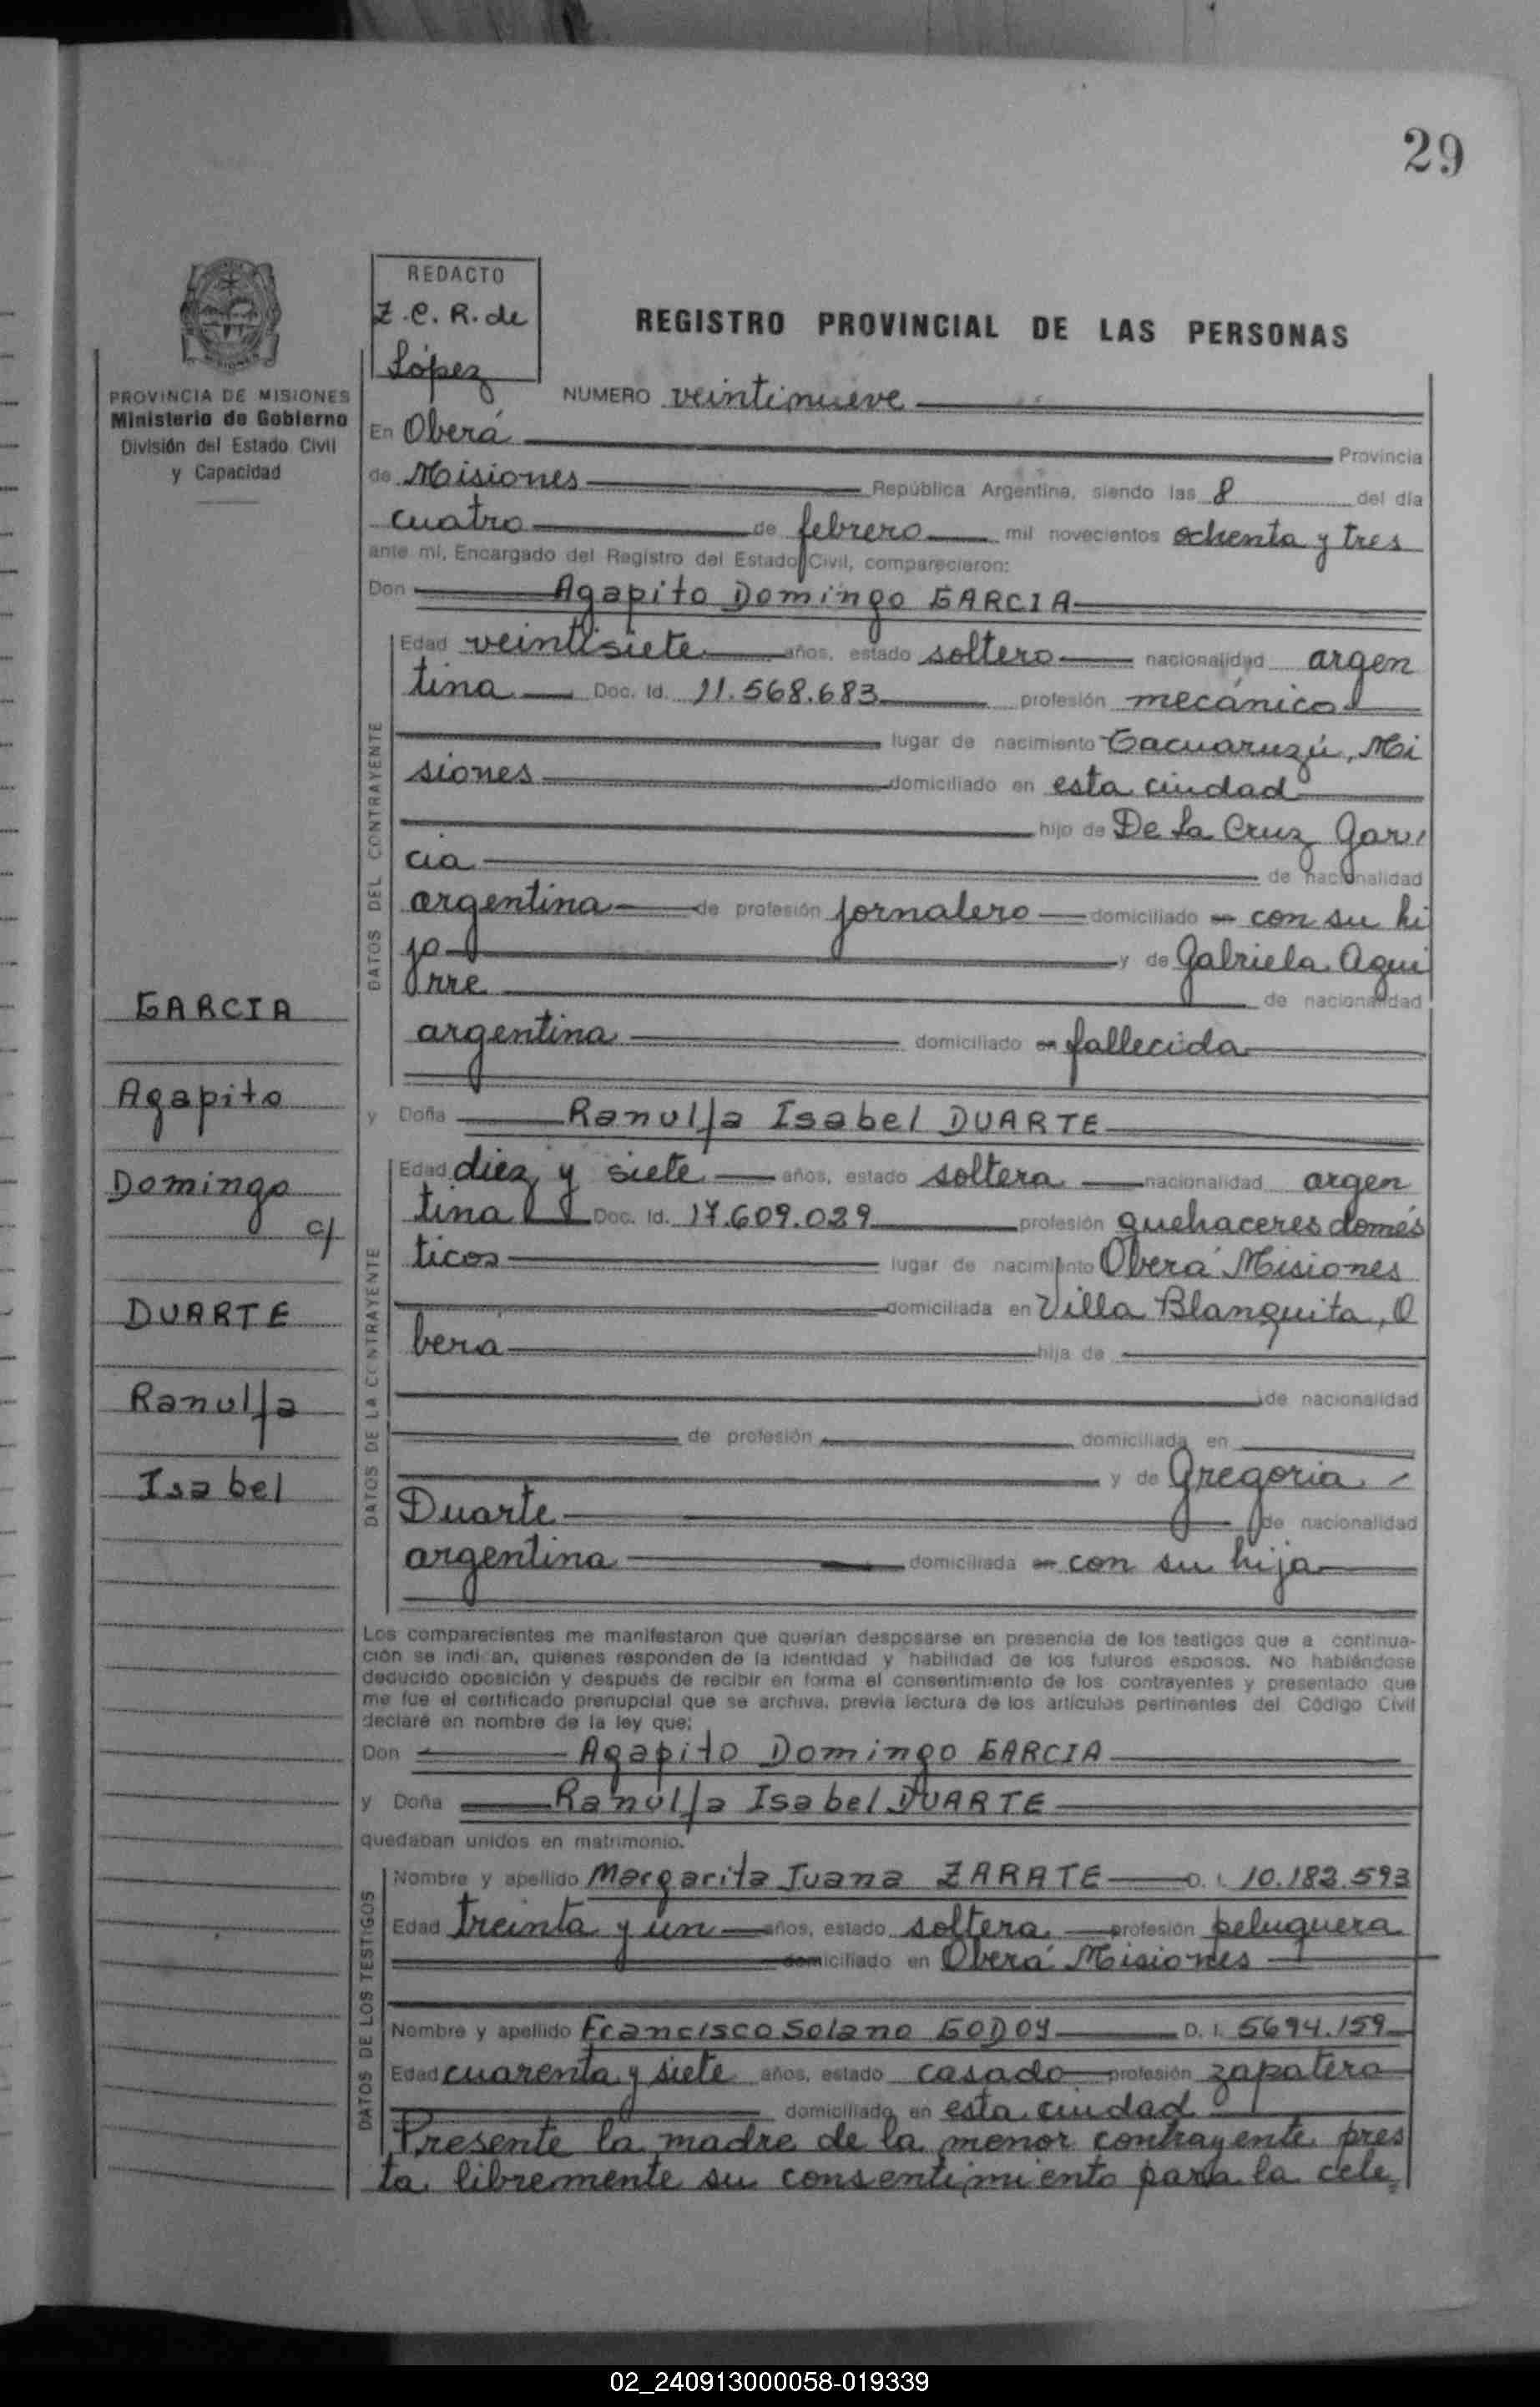 29
REDACTO
Z.C.R. de
López
REGISTRO PROVINCIAL DE LAS PERSONAS
PROVINCIA DE MISIONES
Ministerio de Gobierno
División del Estado Civil
y Capacidad
NUMERO veintinueve
En Oberá Provincia
de Misiones República Argentina, siendo las 8 del día
cuatro de febrero mil novecientos ochenta y tres
ante mí, Encargado del Registro del Estado Civil, comparecieron:
Don Agapito Domingo GARCIA
DATOS DEL CONTRAYENTE
Edad veintisiete años, estado soltero nacionalidad argen
tina Doc. Id. 11.568.683 profesión mecánico
lugar de nacimiento Tacuaruzú, Mi
siones domiciliado en esta ciudad
hijo de De La Cruz Gar
cia de nacionalidad
argentina de profesión jornalero domiciliado en con su hi
jo y de Gabriela Agui
rre de nacionalidad
argentina domiciliado en fallecida
y Doña Ranulfa Isabel DUARTE
DATOS DE LA CONTRAYENTE
Edad diez y siete años, estado soltera nacionalidad argen
tina Doc. Id. 17.609.029 profesión quehaceres domés
ticos lugar de nacimiento Oberá Misiones
domiciliada en Villa Blanquita, O
bera hija de
de nacionalidad
de profesión domiciliada en
y de Gregoria
Duarte de nacionalidad
argentina domiciliada en con su hija
GARCIA
Agapito
Domingo
c/
DUARTE
Ranulfa
Isabel
Los comparecientes me manifestaron que querían desposarse en presencia de los testigos que a continua-
ción se indi an, quienes responden de la identidad y habilidad de los futuros esposos. No habiéndose
deducido oposición y después de recibir en forma el consentimiento de los contrayentes y presentado que
me fue el certificado prenupcial que se archiva, previa lectura de los artículos pertinentes del Código Civil
declaré en nombre de la ley que:
Don Agapito Domingo GARCIA
y Doña Ranulfa Isabel DUARTE
quedaban unidos en matrimonio.
DATOS DE LOS TESTIGOS
Nombre y apellido Margarita Juana ZARATE D. I. 10.182.593
Edad treinta y un años, estado soltera profesión peluquera
domiciliado en Oberá Misiones
Nombre y apellido Francisco Solano GODOY D. I. 5694.159
Edad cuarenta y siete años, estado casado profesión zapatero
domiciliado en esta ciudad
Presente la madre de la menor contrayente pres
ta libremente su consentimiento para la cele
02_240913000058-019339